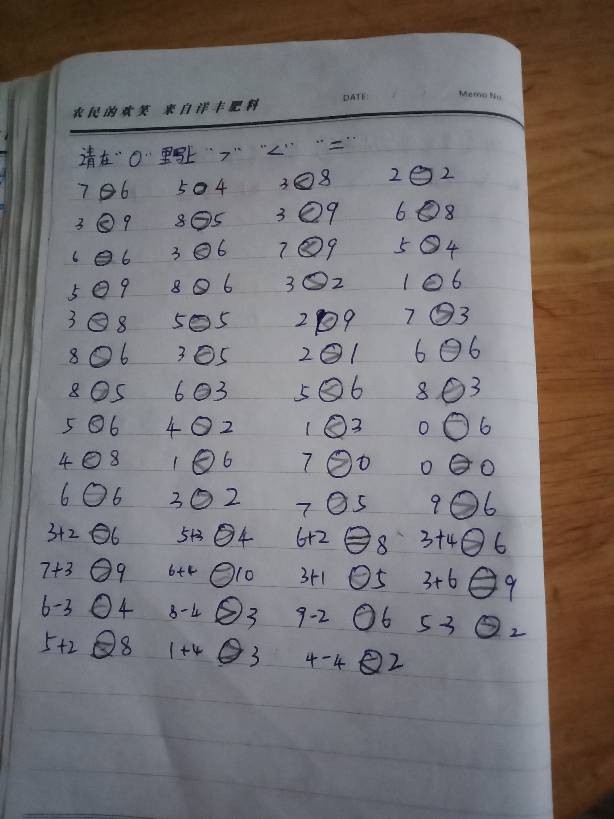 农民的欢笑 来自洋丰肥料 DATE: Memo No.
请在"○"里写上">" "<" "="
7 > 6 5 4 3 < 8 2 = 2
3 < 9 8 > 5 3 < 9 6 < 8
6 = 6 3 < 6 7 < 9 5 > 4
5 < 9 8 > 6 3 > 2 1 < 6
3 < 8 5 = 5 2 9 7 > 3
8 > 6 3 < 5 2 > 1 6 = 6
8 > 5 6 > 3 5 < 6 8 > 3
5 < 6 4 > 2 1 < 3 0 6
4 < 8 1 < 6 7 > 0 0 = 0
6 6 3 > 2 7 > 5 9 > 6
3+2 < 6 5+3 > 4 6+2 = 8 3+4 > 6
7+3 > 9 6+4 10 3+1 < 5 3+6 = 9
6-3 < 4 8-4 > 3 9-2 6 5-3 2
5+2 < 8 1+4 > 3 4-4 < 2